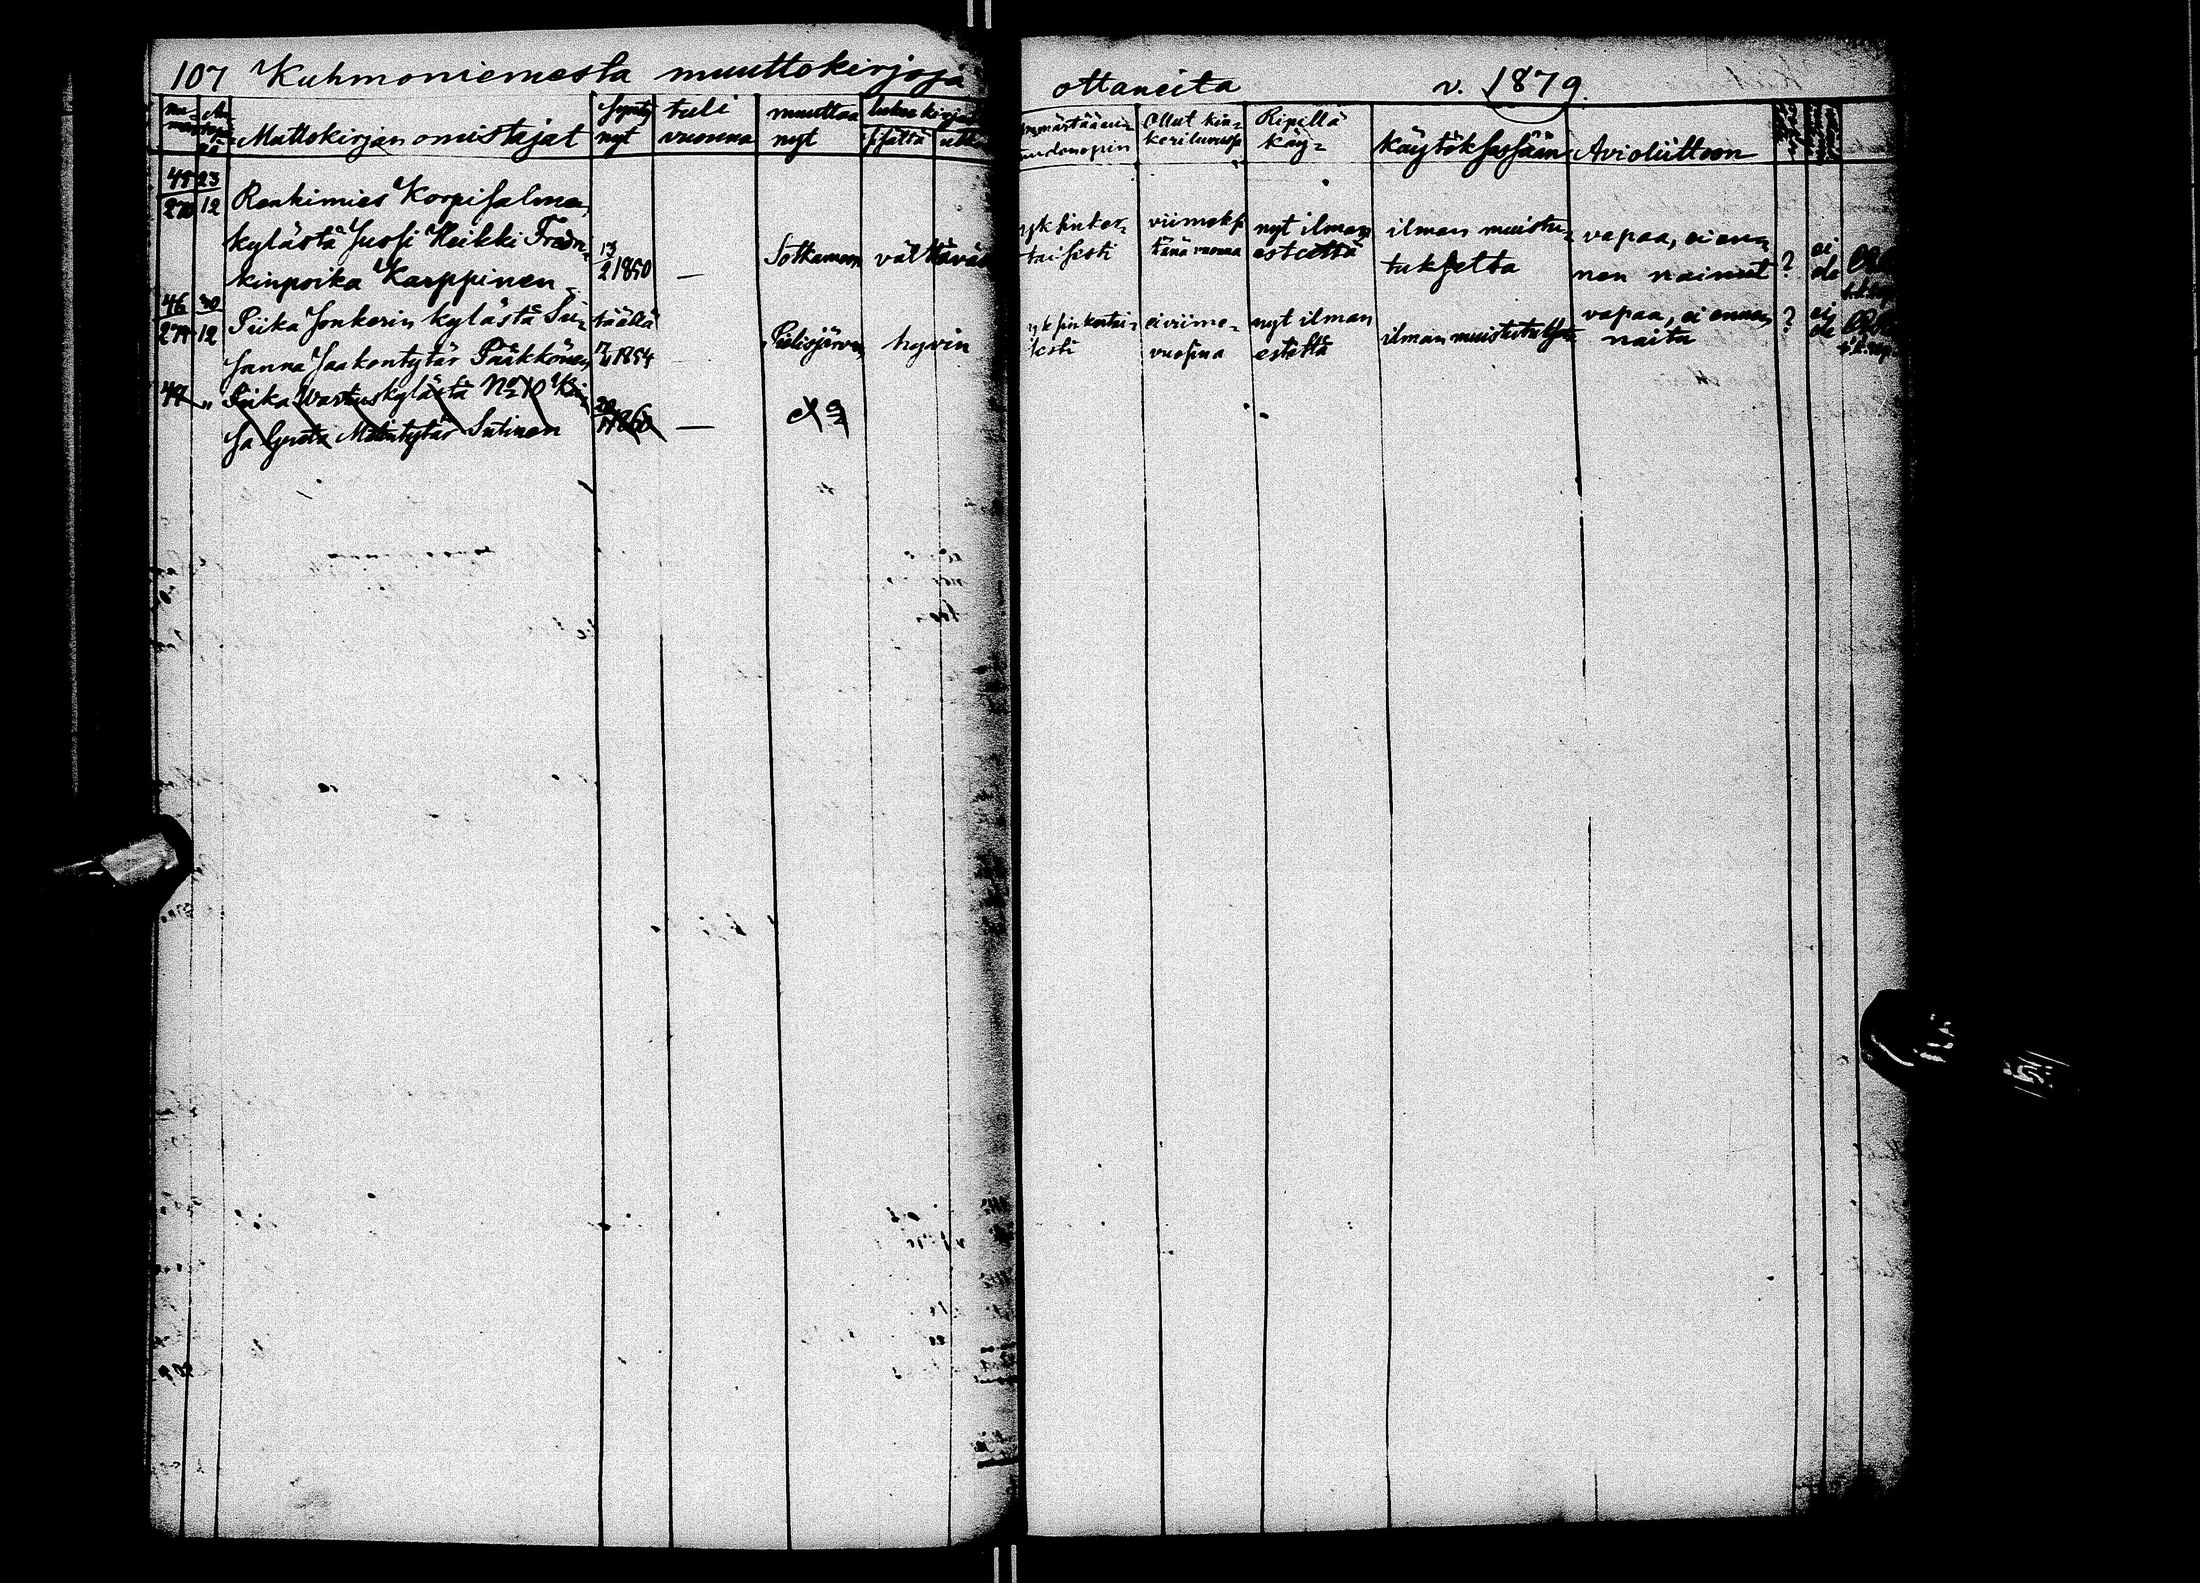 107 Kuhmoniemestä muuttokirjoja ottaneita v. 1879.
Muttokirjan omistajat
Synty nyt
tuli vuonna
muuttaa nyt
lukee kirjaa
sisältä
Ollut kin-
kerilumussa
Ripillä
käy-
Käytöksessään
Avioliittoon
48 23
270 12
Renkimies Korpisalmen
kylästä Jussi Heikki Fredri-
kinpoika Karppinen
13/2 1850
—
Sotkamoon
välttävästi
yksinker-
taisesti
viimeksi
tänä vuonna
nyt ilman
estettä
ilman muistu-
tuksetta
vapaa, ei en-
nen nainut
?
ei
ole
46 30
271 12
Piika Jonkerin kylästä Su-
sanna Jaakontytär Pääkkönen
täällä
1854
—
Pielisjärven
hyvin
yksinkertai-
sesti
ei viime-
vuosina
nyt ilman
estettä
ilman muistutuksetta
vapaa, ei ennen
naitu
?
ei
ole
47 "
Piika Wartiuskylästä No 10 Kai-
sa Greta Matintytär Sutinen
1860
—